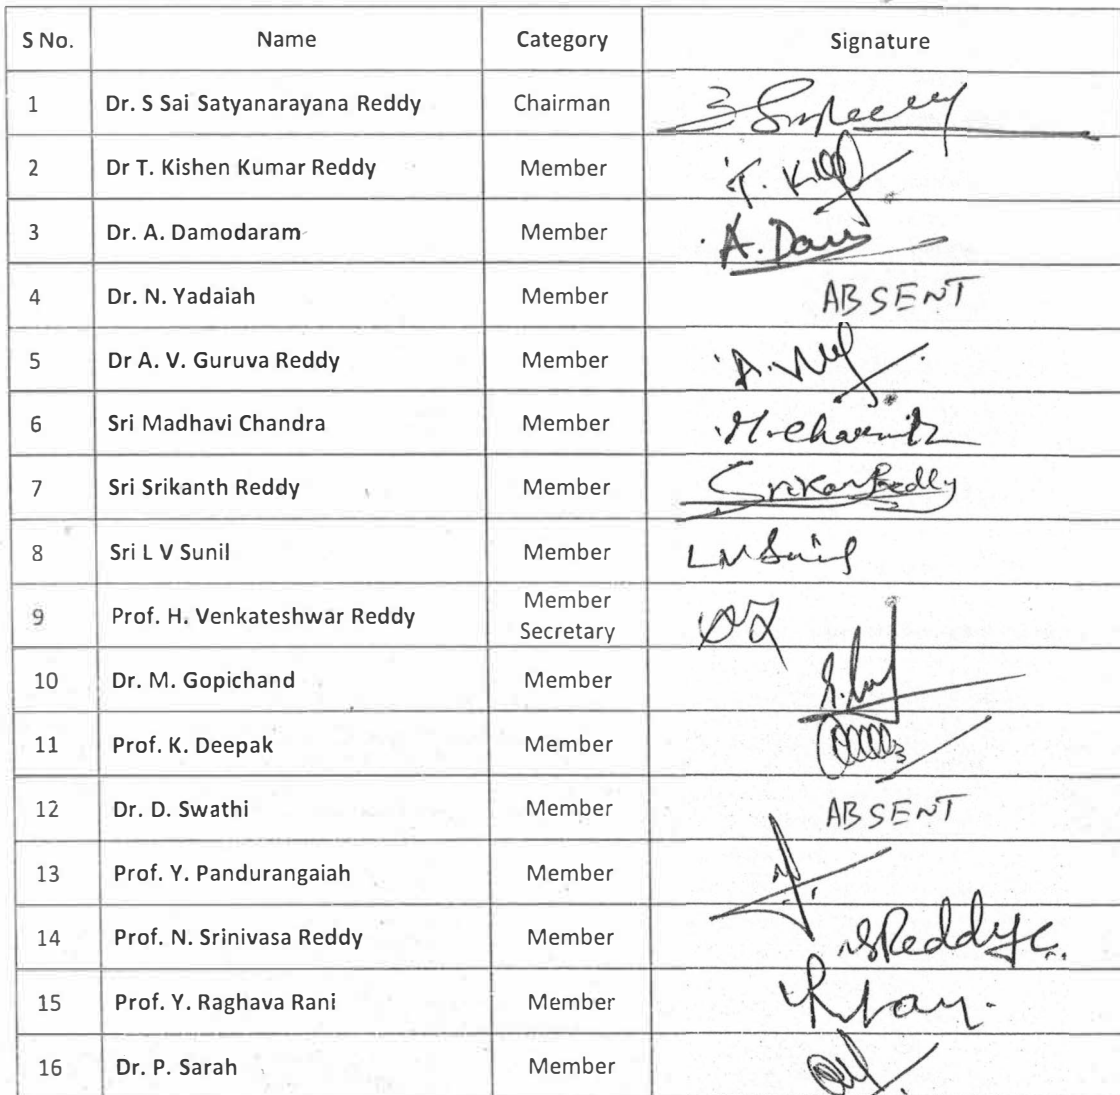 S No. Name Category Signature
1 Dr. S Sai Satyanarayana Reddy Chairman
2 Dr T. Kishen Kumar Reddy Member T.
3 Dr. A. Damodaram Member A.
4 Dr. N. Yadaiah Member ABSENT
5 Dr A. V. Guruva Reddy Member A.
6 Sri Madhavi Chandra Member M.
7 Sri Srikanth Reddy Member
8 Sri L V Sunil Member L V Sunil
9 Prof. H. Venkateshwar Reddy Member
Secretary
10 Dr. M. Gopichand Member
11 Prof. K. Deepak Member
12 Dr. D. Swathi Member ABSENT
13 Prof. Y. Pandurangaiah Member
14 Prof. N. Srinivasa Reddy Member NSReddy
15 Prof. Y. Raghava Rani Member
16 Dr. P. Sarah Member